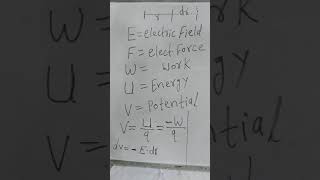 r dr
E = electric Field
F = elect. Force
W = Work
U = Energy
V = Potential
V = U/q = -W/q
dv = - E·dr